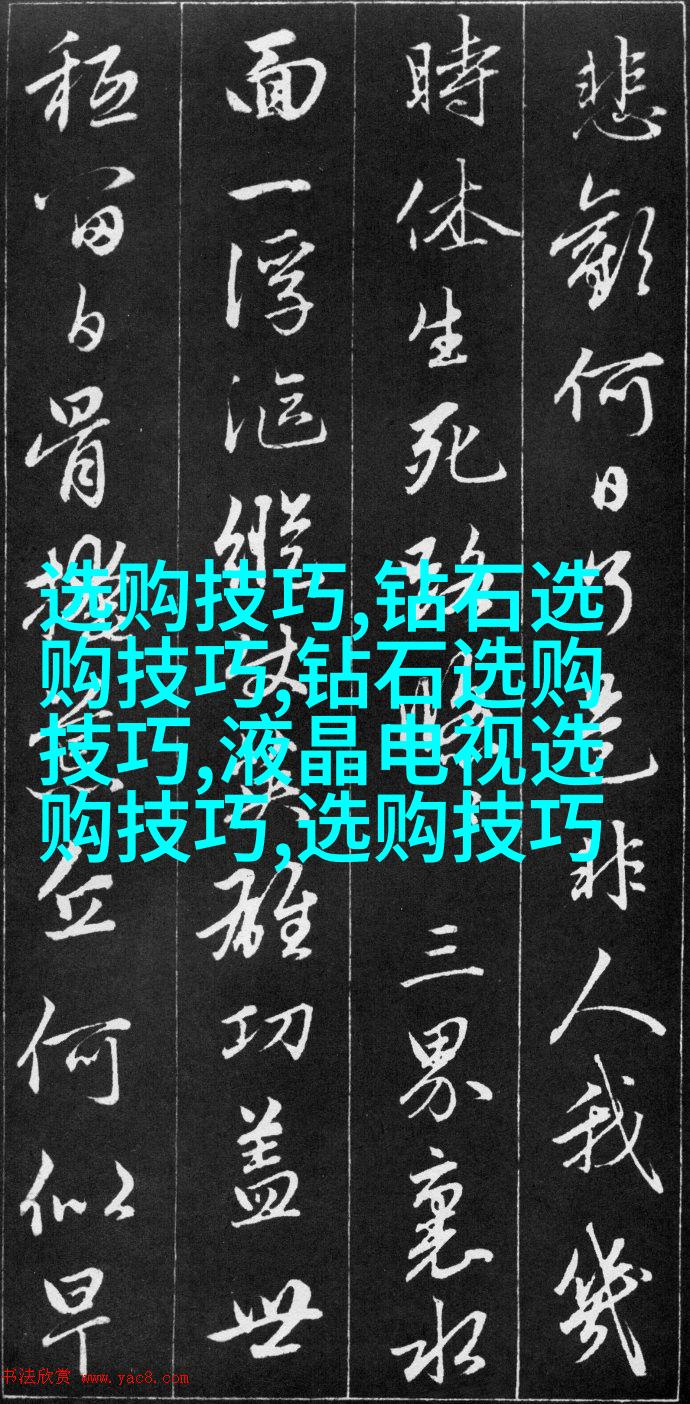 悲歡何日了是非人我幾
時休生死路
三界裏水
面一浮漚縱
雄功蓋世
種留白骨
丘何似早
选购技巧,钻石选
购技巧,钻石选购
技巧,液晶电视选
购技巧,选购技巧
书法欣赏 www.yac8.com